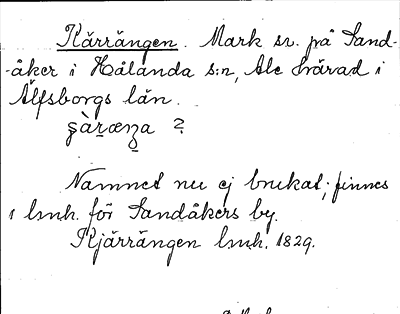 Kärrängen. Mark sv. på Sand-
-åker i Hålanda s:n, Ale härad i
Älfsborgs län.
Namnet nu ej brukat; finnes
i lmh. för Sandåkers by.
Kjärrängen lmh. 1829.